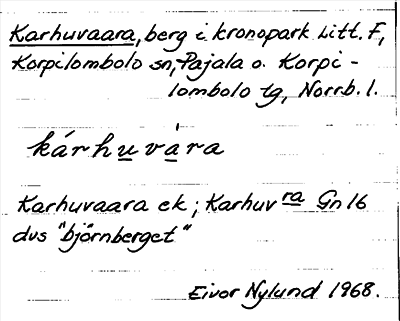 Karhuvaara, berg i kronopark Litt. F,
Korpilombolo sn, Pajala o. Korpi-
lombolo tg, Norrb. l.
kárhuvára
Karhuvaara ek; Karhuvra Gn 16
dvs "björnberget"
Eivor Nylund 1968.